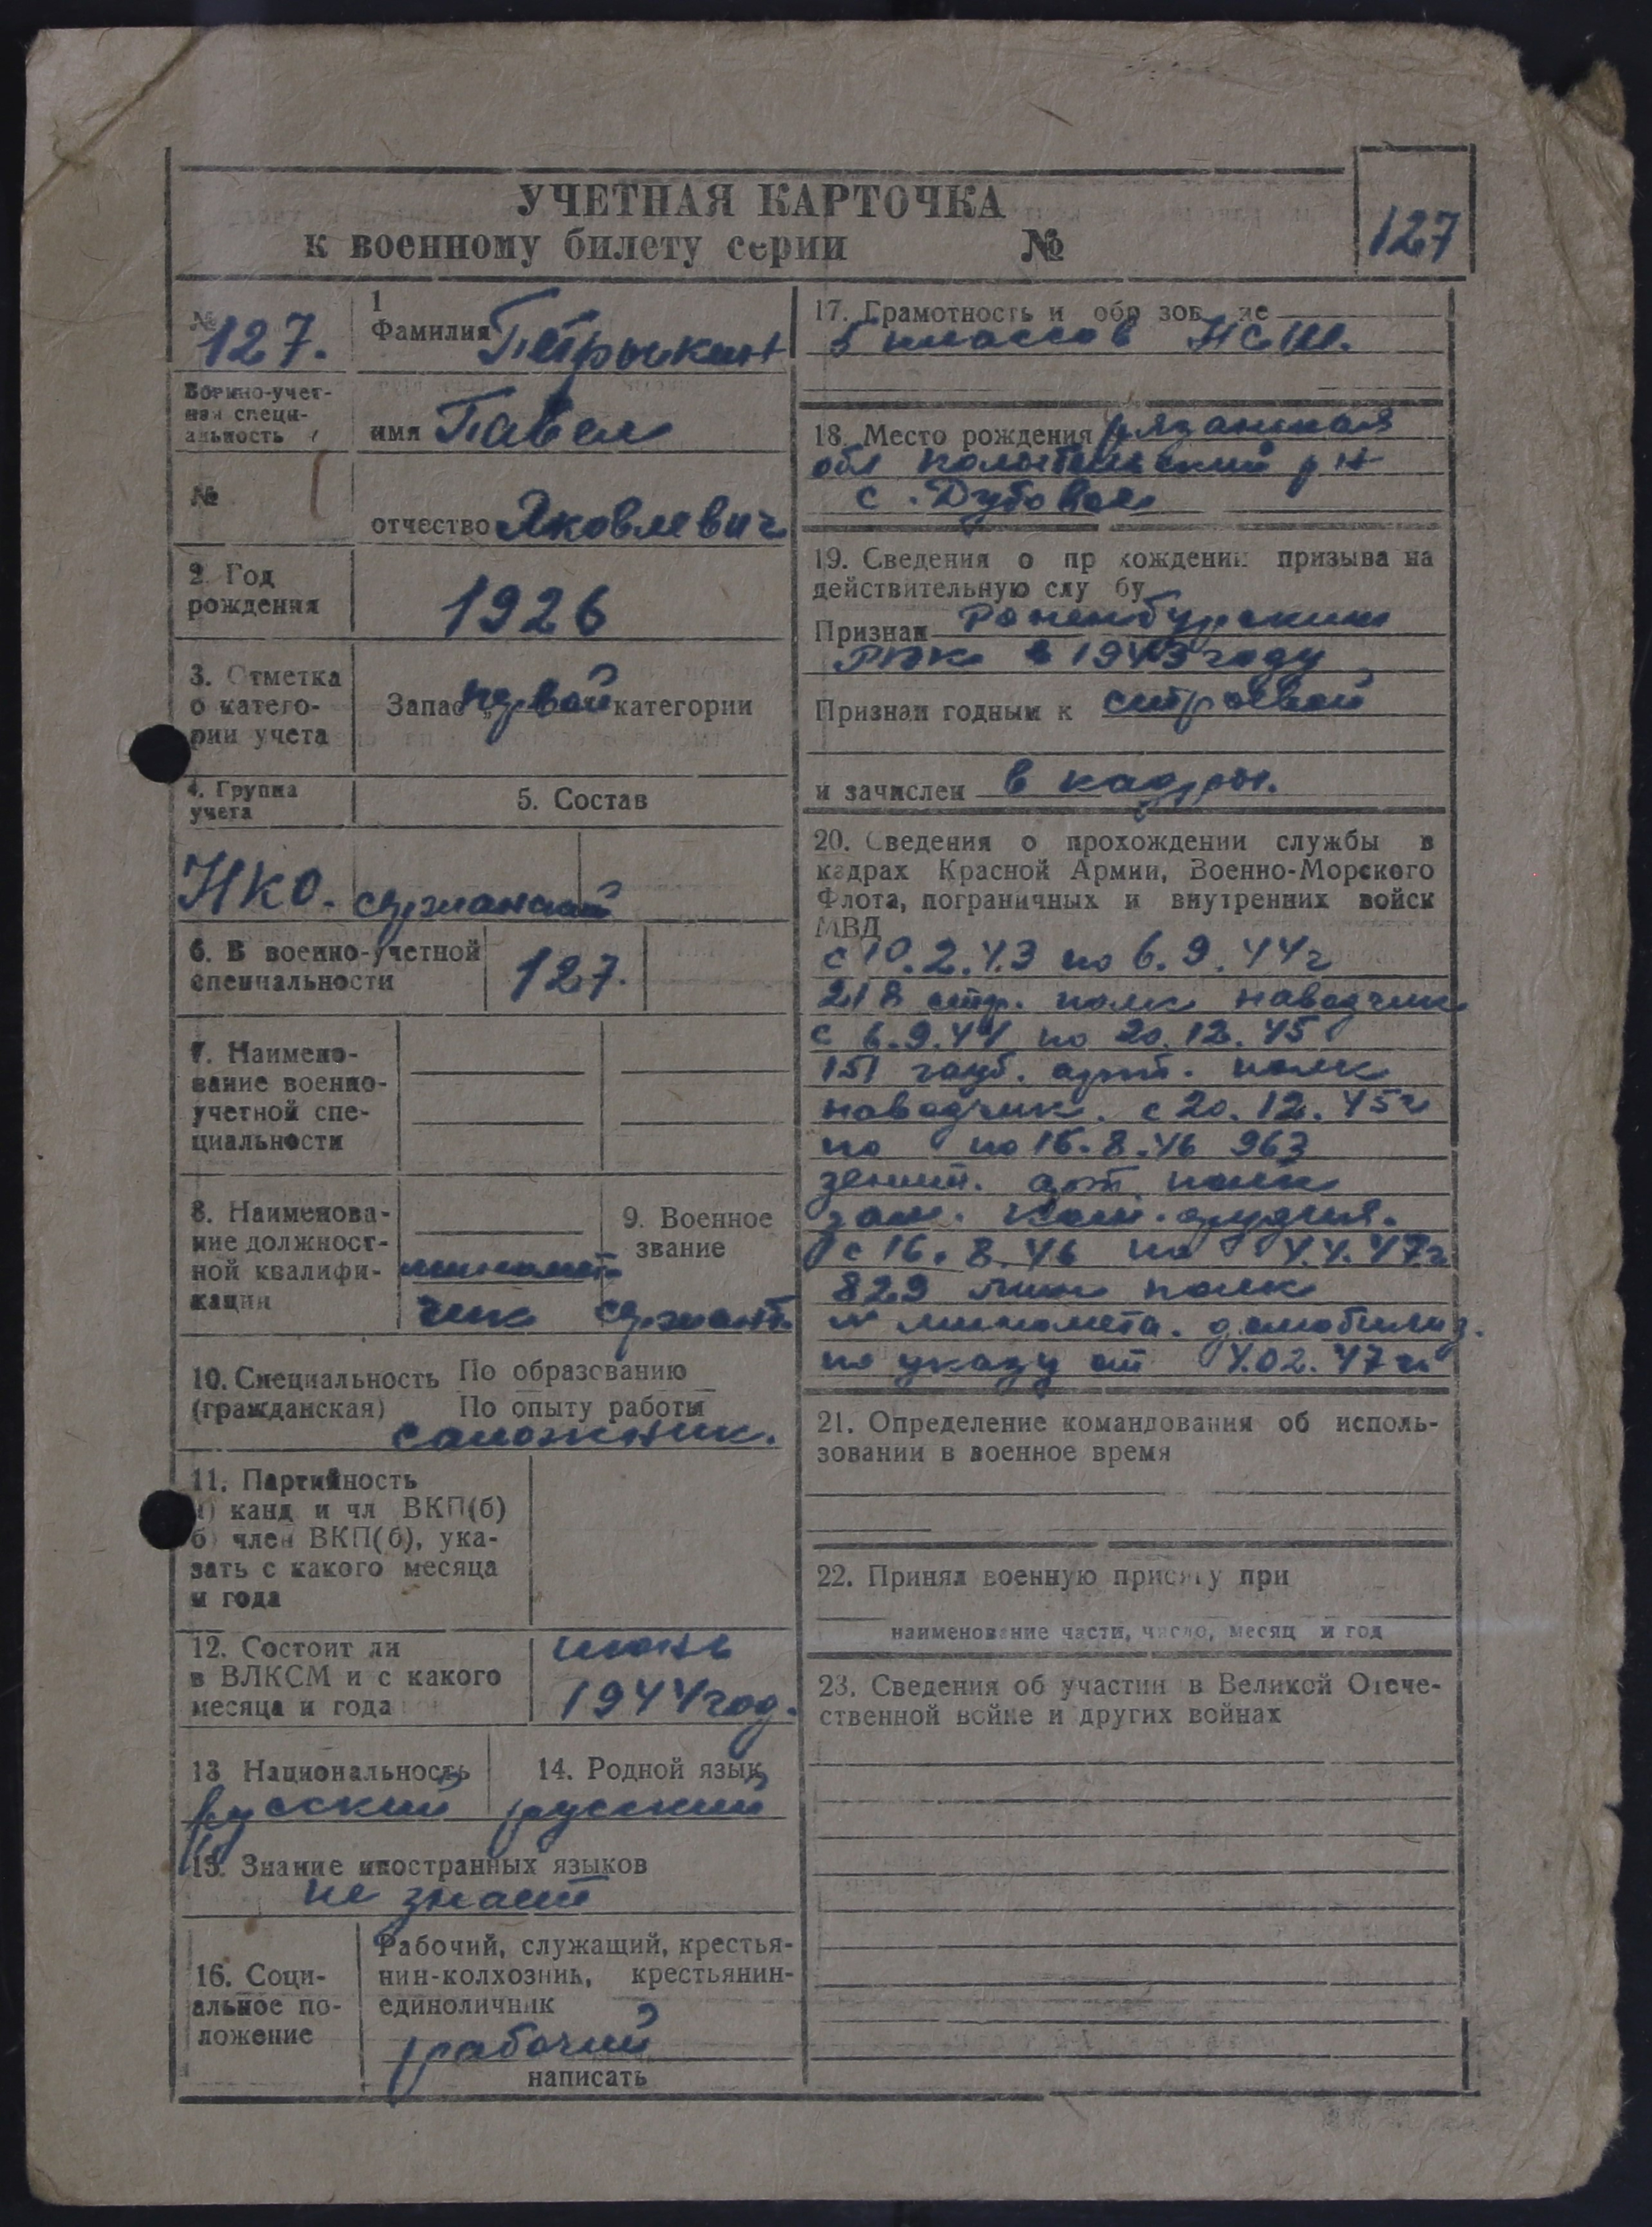 УЧЕТНАЯ КАРТОЧКА
к военному билету серии №
127
№ 127.
Военно-учет-
ная специ-
альность
№
1
Фамилия Петрыкин
имя Павел
отчество Яковлевич
2. Год
рождения
1926
3. Отметка
о катего-
рии учета
Запас первой категории
4. Группа
учета
5. Состав
НКО. сержанский
6. В военно-учетной
специальности
127.
7. Наимено-
вание военно-
учетной спе-
циальности
8. Наименова-
ние должност-
ной квалифи-
кации
миномет
чик
9. Военное
звание
сержант.
10. Специальность
(гражданская)
По образованию
По опыту работы
сапожник.
11. Партийность
а) канд и чл ВКП(б)
б) член ВКП(б), ука-
зать с какого месяца
и года
12. Состоит ли
в ВЛКСМ и с какого
месяца и года
июнь
1944 год.
13 Национальность
русский
14. Родной язык
русский
15. Знание иностранных языков
не знает
16. Соци-
альное по-
ложение
Рабочий, служащий, крестья-
нин-колхозник, крестьянин-
единоличник
рабочий
написать
17. Грамотность и обр зов ие
5 классов НСШ.
18. Место рождения Рязанская
обл р-н
с. Дубовое
19. Сведения о пр хождении призыва на
действительную слу бу
Признан Раненбургским
РВК в 1943 году
Признан годным к строевой
и зачислен в кадры.
20. Сведения о прохождении службы в
кадрах Красной Армии, Военно-Морского
Флота, пограничных и внутренних войск
МВД
с 10.2.43 по 6.9.44 г
218 стр. полк наводчик
с 6.9.44 по 20.12.45
151 гауб. арт. полк
наводчик. с 20.12.45 г
по по 16.8.46 963
зенит. арт. полк
зам. ком. орудия.
с 16.8.46 по 4.4.47 г
829 мин полк
к миномета. демобилиз.
по указу от 4.02.47 г
21. Определение командования об исполь-
зовании в военное время
22. Принял военную присягу при
наименование части, число, месяц и год
23. Сведения об участии в Великой Отече-
ственной войне и других войнах